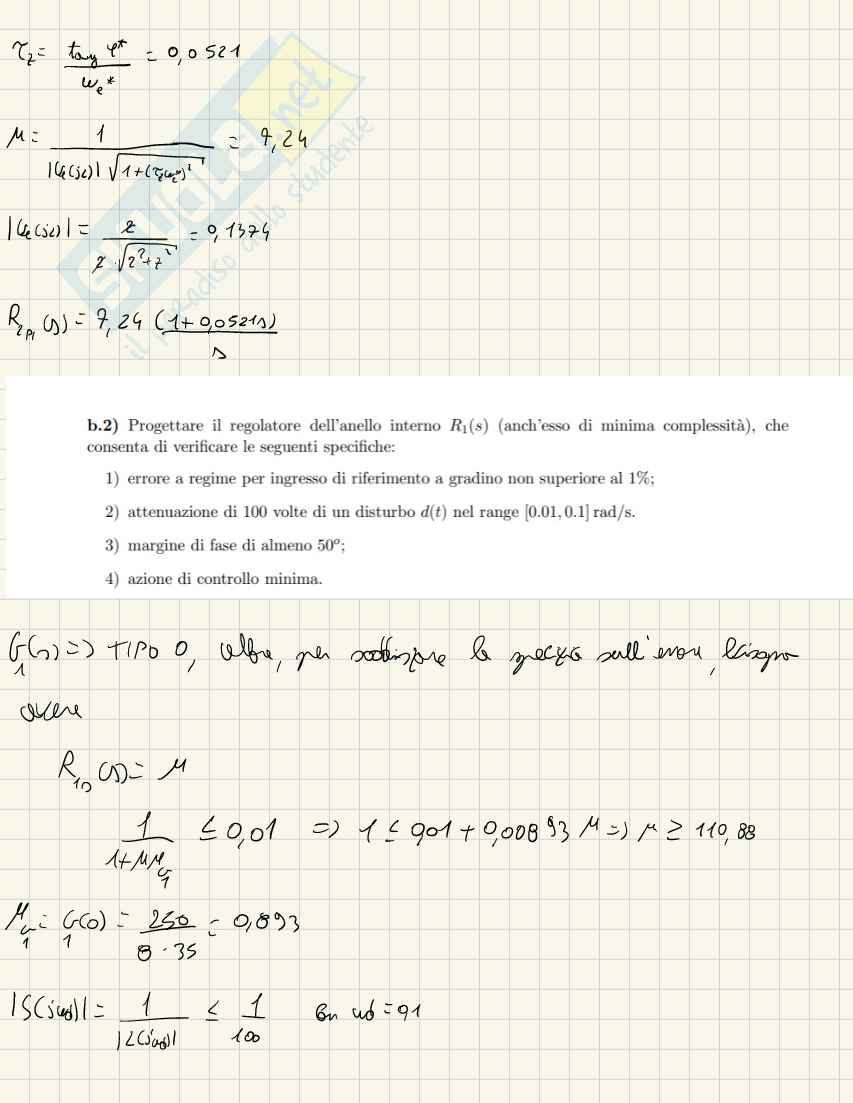 τz = tang φ* / ωc* = 0,0521
SKUOLA.net
il paradiso dello studente
μ = 1 / |Ge(j2)| √1+(τzωc*)² = 7,24
|Ge(j2)| = 2 / 2·√2²+7² = 0,1374
R2PI(s) = 7,24 (1+0,0521s) / s
b.2) Progettare il regolatore dell'anello interno R₁(s) (anch'esso di minima complessità), che
consenta di verificare le seguenti specifiche:
1) errore a regime per ingresso di riferimento a gradino non superiore al 1%;
2) attenuazione di 100 volte di un disturbo d(t) nel range [0.01, 0.1] rad/s.
3) margine di fase di almeno 50°;
4) azione di controllo minima.
G₁(s) => TIPO 0, per soddisfare la specifica sull'errore, bisogna
avere
R₁₀(s) = μ
1 / 1+μμG₁ ≤ 0,01 => 1 ≤ 0,01 + 0,00893 μ => μ ≥ 110,88
μG₁ = G₁(0) = 250 / 8·35 = 0,893
|S(jωd)| = 1 / |L(jωd)| ≤ 1 / 100 con ωd = 0,1